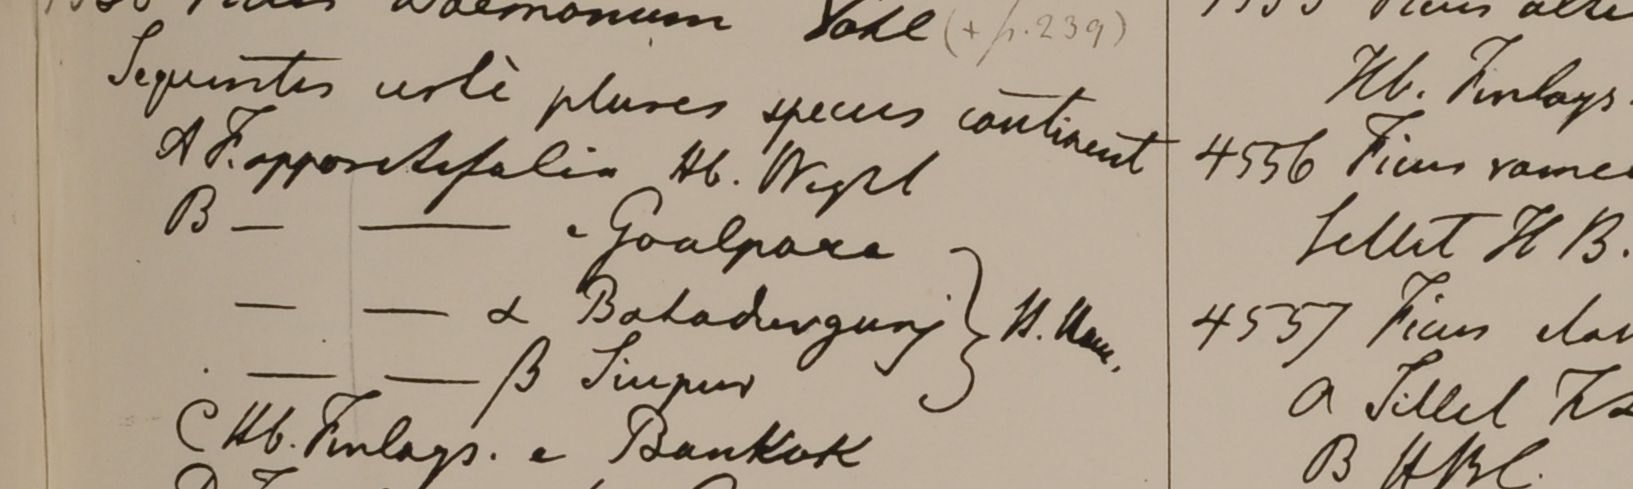 Ficus Daemonum Vahl (+ p. 239)
Sequentes certè plures species continent
A F. oppositifolia Hb. Wight
B — —— e Goalpara
— — α Bahadurgunj } H. Ham.
— — β Sinpur
C Hb. Finlays. e Bankok
4555 Ficus
Hb. Finlays.
4556 Ficus
Sillet H B.
4557 Ficus
a Sillet
B HBC.